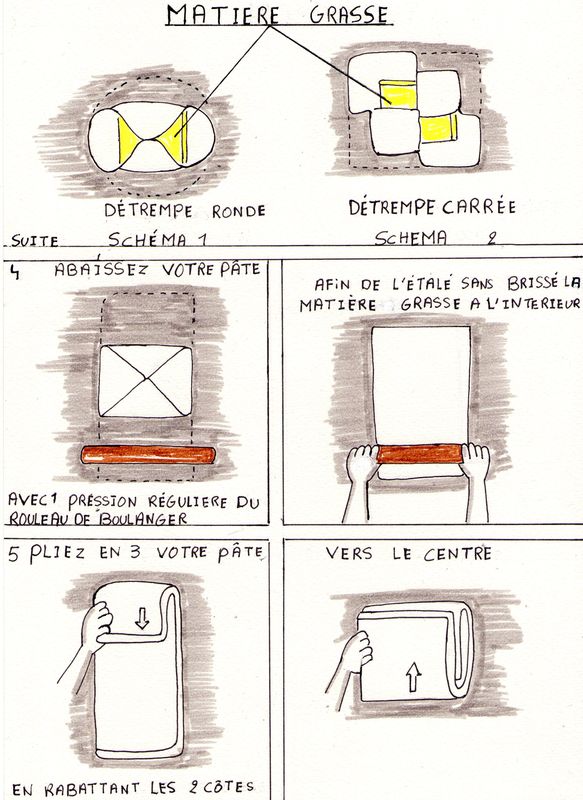 MATIERE GRASSE
DÉTREMPE RONDE
DÉTREMPE CARRÉE
SUITE SCHÉMA 1
SCHEMA 2
4 ABAISSEZ VOTRE PÂTE
AFIN DE L'ÉTALÉ SANS BRISSÉ LA
MATIÈRE GRASSE A L'INTERIEUR
AVEC 1 PRESSION RÉGULIERE DU
ROULEAU DE BOULANGER
5 PLIEZ EN 3 VOTRE PÂTE
VERS LE CENTRE
EN RABATTANT LES 2 CÔTES